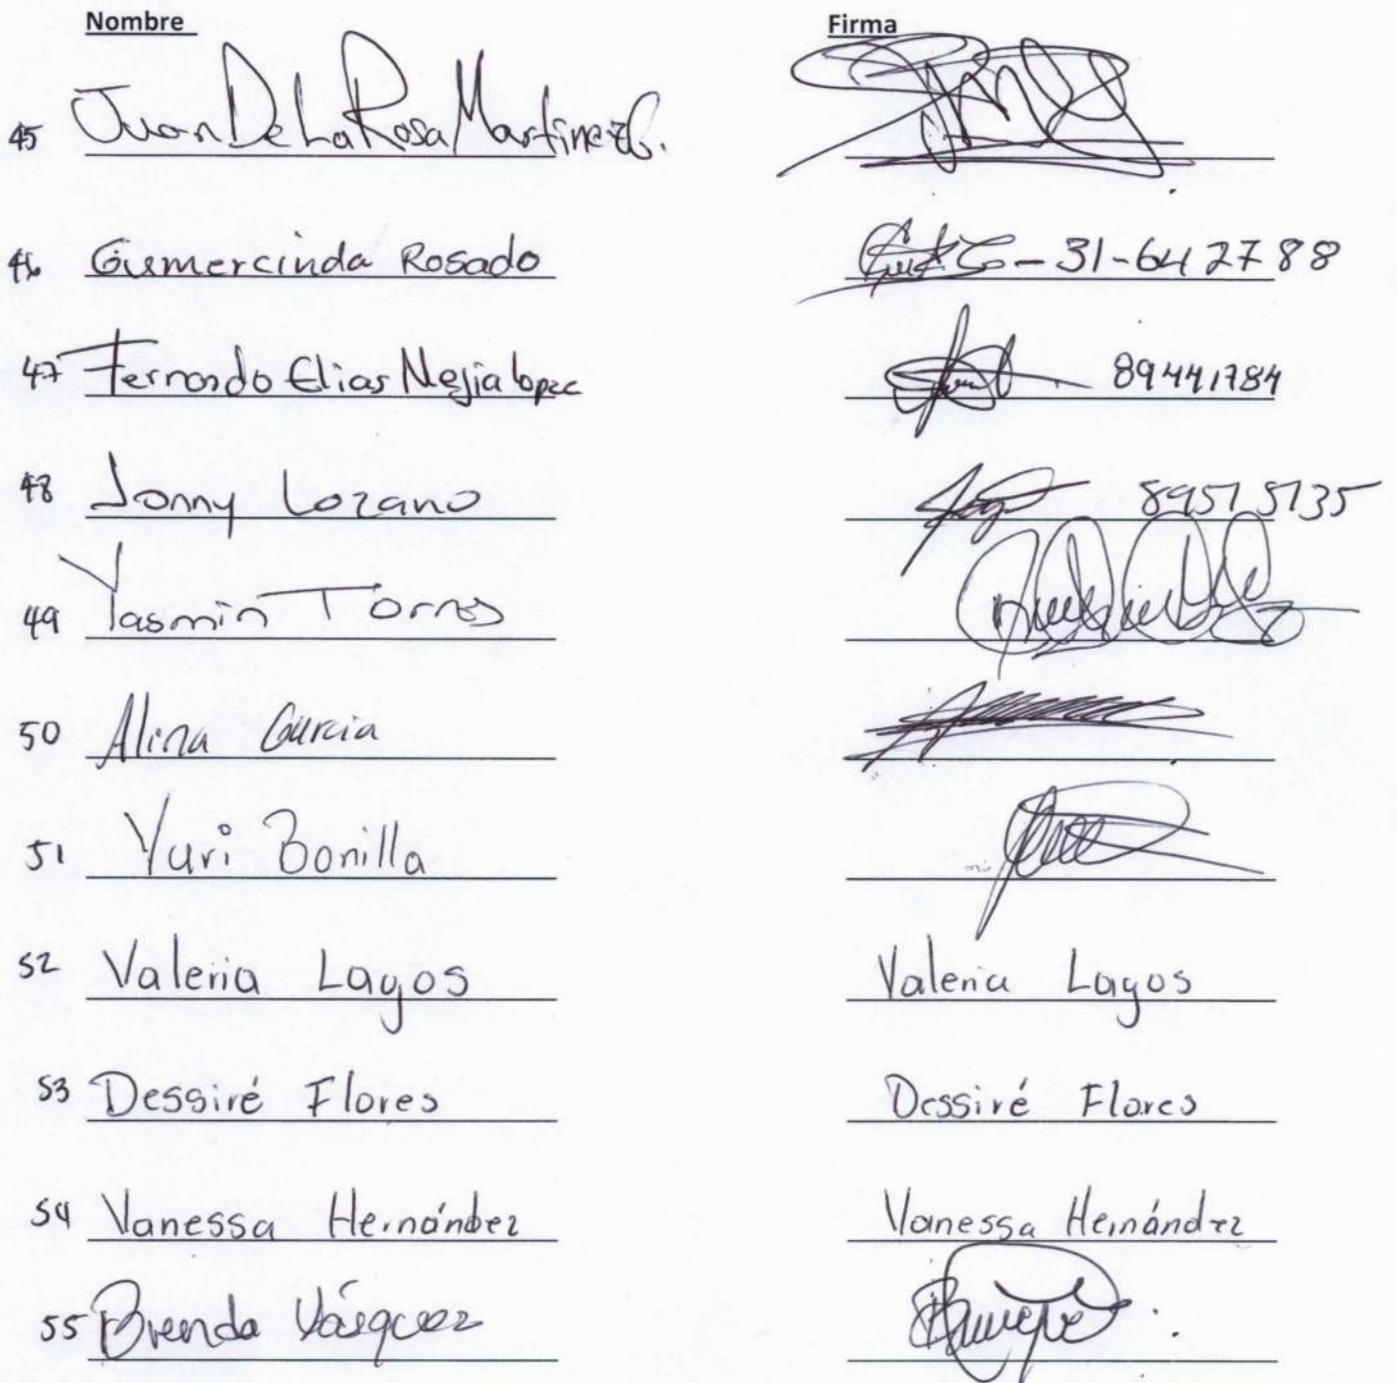 Nombre Firma
45 Juan De La Rosa Martinez G.
46 Gumercinda Rosado - 31-642788
47 Fernando Elias Mejia lopez 89441784
48 Jonny Lozano 89515135
49 Yasmin Torres
50 Alina Garcia
51 Yuri Bonilla
52 Valeria Lagos Valeria Lagos
53 Dessiré Flores Dessiré Flores
54 Vanessa Hernández Vanessa Hernández
55 Brenda Vásquez